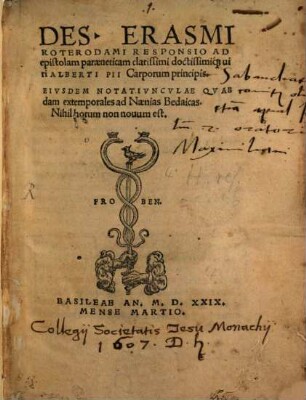 DES. ERASMI
ROTERODAMI RESPONSIO AD
epistolam paræneticam clarissimi doctissimiq; ui
ri ALBERTI PII Carporum principis.
EIVSDEM NOTATIVNCVLAE QVAE
dam extemporales ad Nænias Bedaicas.
Nihil horum non nouum est.
oratore
Maximiliani
FRO BEN.
BASILEAE AN. M. D. XXIX.
MENSE MARTIO.
Collegij Societatis Jesu Monachij
1607. D. h.